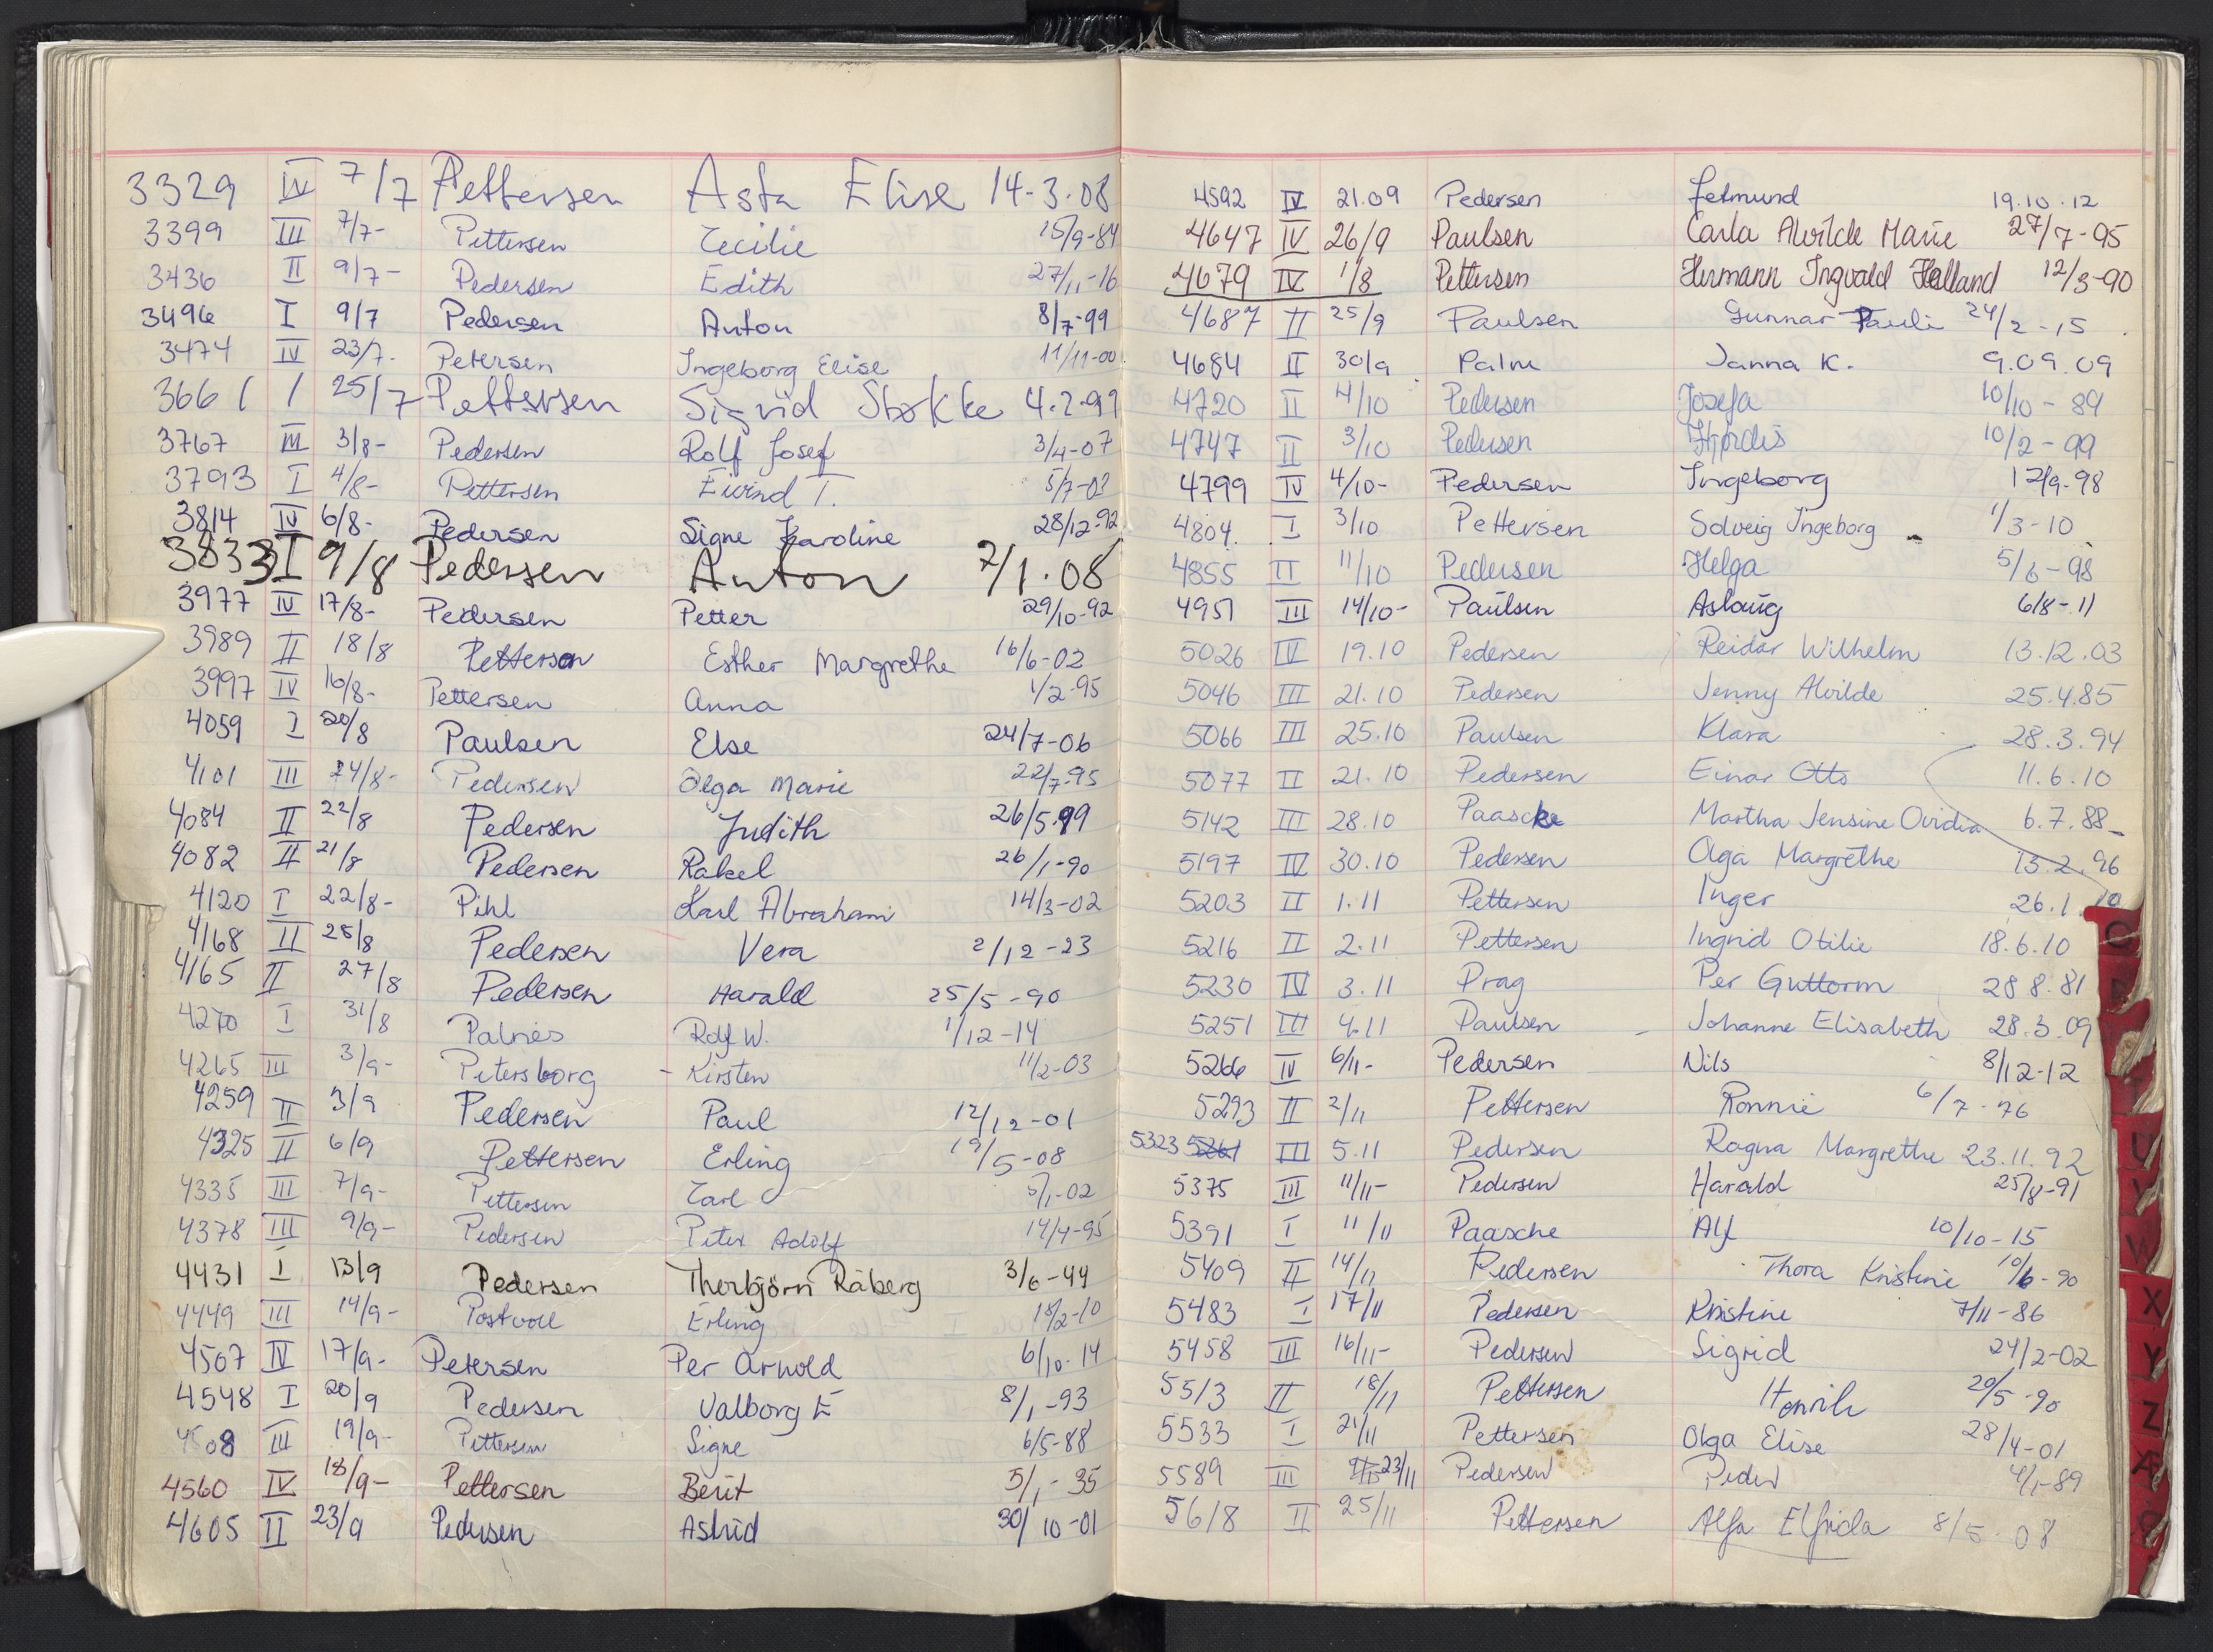 3329 IV 7/7 Pettersen Asta Elise 14-3-08
3399 III 7/7- Pettersen Cecilie 15/9-84
3436 II 9/7- Pedersen Edith 27/11-16
3496 I 9/7 Pedersen Anton 8/7-99
3474 IV 23/7- Petersen Ingeborg Elise 11/11-00
3661 I 25/7 Pettersen Sigrid Stokke 4.2-99
3767 III 3/8- Pedersen Rolf Josef 3/4-07
3793 I 4/8- Pettersen Eivind T. 5/7-02
3814 IV 6/8- Pedersen Signe Karoline 28/12-92
3833 I 9/8 Pedersen Anton 2/1.08
3977 IV 17/8- Pedersen Petter 29/10-92
3989 II 18/8 Petterson Esther Margrethe 16/6-02
3997 IV 16/8- Pettersen Anna 1/2-95
4059 I 20/8 Paulsen Else 24/7-06
4101 III 24/8- Pedersen Olga Marie 22/7-95
4084 II 22/8 Pedersen Judith 26/5-99
4082 II 21/8 Pedersen Rakel 26/1-90
4120 I 22/8- Pihl Karl Abraham 14/3-02
4168 II 25/8 Pedersen Vera 2/12-23
4165 II 27/8 Pedersen Harald 25/5-90
4270 I 31/8 Palnes Rolf W. 1/12-14
4265 III 3/9- Petersborg - Kirsten 11/2-03
4259 II 3/9 Pedersen Paul 12/12-01
4325 II 6/9 Pettersen Erling 19/5-08
4335 III 7/9- Pettersen Carl 5/1-02
4378 III 9/9- Pedersen Peter Adolf 14/4-95
4431 I 13/9 Pedersen Thorbjörn Råberg 3/6-44
4449 III 14/9- Postvoll Erling 18/2-10
4507 IV 17/9- Petersen Per Arnold 6/10-14
4548 I 20/9 Pedersen Valborg E 8/1-93
4508 III 19/9- Pettersen Signe 6/5-88
4560 IV 18/9- Pettersen Berit 5/1-35
4605 II 23/9 Pedersen Astrid 30/10-01
4592 IV 21.09 Pedersen Jetmund 19.10.12
4647 IV 26/9 Paulsen Carla Alvilde Marie 27/7-95
4679 IV 1/8 Pettersen Hermann Ingvald Helland 12/3-90
4687 II 25/9 Paulsen Gunnar Pauli 24/2-15
4684 II 30/9 Palm Janna K. 9.09.09
4720 II 4/10 Pedersen Josefa 10/10-89
4747 II 3/10 Pedersen Hjørdis 10/2-99
4799 IV 4/10- Pedersen Ingeborg 12/9-98
4804. I 3/10 Pettersen Solveig Ingeborg 1/3-10
4855 II 11/10 Pedersen Helga 5/6-98
4951 III 14/10- Paulsen Aslaug 6/8-11
5026 IV 19.10 Pedersen Reidar Wilhelm 13.12.03
5046 III 21.10 Pedersen Jenny Alvilde 25.4.85
5066 III 25.10 Paulsen Klara 28.3.94
5077 II 21.10 Pedersen Einar Otto 11.6.10
5142 III 28.10 Paascke Martha Jensine Ovidia 6.7.88
5197 IV 30.10 Pedersen Olga Margrethe 13.2.96
5203 II 1.11 Pettersen Inger 26.1.10
5216 II 2.11 Pettersen Ingrid Otilie 18.6.10
5230 IV 3.11 Prag Per Guttorm 28 8.81
5251 III 4.11 Paulsen - Johanne Elisabeth 28.3.09
5266 IV 6/11- Pedersen Nils 8/12-12
5293 II 2/11 Pettersen Ronnie 6/7-76
5323 5261 III 5.11 Pedersen Ragna Margrethe 23.11.92
5375 III 11/11- Pedersen Harald 25/8-91
5391 I 11/11 Paasche Alf 10/10-15
5409 II 14/11 Pedersen Thora Kristine 10/6-90
5483 I 17/11 Pedersen Kristine 7/11-86
5458 III 16/11- Pedersen Sigrid 24/2-02
5513 II 18/11 Pettersen Henrik 20/5-90
5533 I 21/11 Pettersen Olga Elise 28/4-01
5589 III 23/11 Pedersen Peder 4/1-89
5618 II 25/11 Pettersen Alfa Elfrida 8/5-08
U
V
W
X
Y
Z
Æ